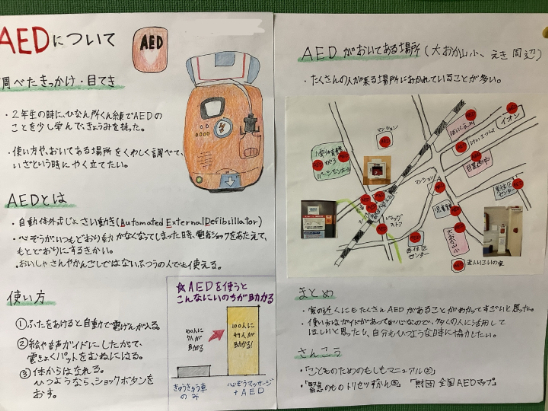 AEDについて
AED
調べたきっかけ・目てき
・2年生の時に、ひなん所くん練でAEDの
ことを少し学んで、きょうみを持った。
・使い方や、おいてある場所をくわしく調べて、
いざという時に やく立てたい。
AEDとは
・自動体外式じょさい動き(Automated External Defibrillator)
・心ぞうがいつもどおり
なくなってしまった時、電気ショックをあたえて、
もとどおりにするきかい。
・おいしゃさんやかんごしではないふつうの人でも使える。
使い方
①ふたをあけると自動で電げんが入る
②絵や音声ガイドにしたがって、
電きょくパットをむねにはる。
③体からはなれる。
ひつようなら、ショックボタンを
おす。
★AEDを使うと
こんなにいのちが助かる
100人に
100人に
助かる!
きゅうきゅう車
のみ
心ぞうマッサージ
+AED
AEDがおいてある場所(大おか山小、えき周辺)
・たくさんの人が集まる場所におかれていることが多い。
マンション
イオン
マンション
ドラッグ
ストア
センター
まとめ
・家の近くにもたくさんAEDがあることがわかってすごいと思った。
・使い方はガイドがあって安心なので、多くの人に活用して
ほしいと思ったし、自分もひつような時に協力したい。
さんこう
「こどものためのもしもマニュアル②」
「財団 全国AEDマップ」